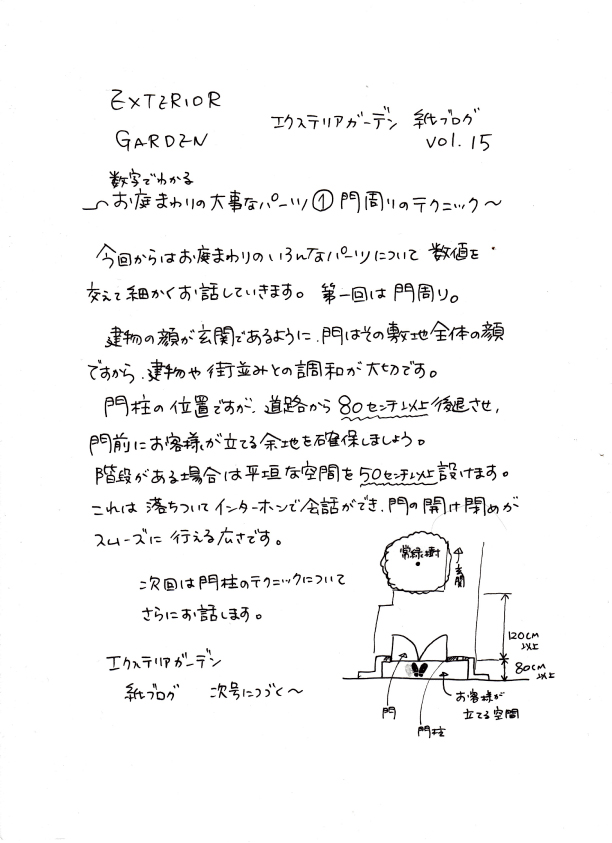 EXTERIOR
GARDEN
エクステリアガーデン 紙ブログ
vol.15
数字でわかる
〜お庭まわりの大事なパーツ① 門周りのテクニック〜
今回からはお庭まわりのいろんなパーツについて 数値を
交えて細かくお話していきます。 第一回は門周り。
建物の顔が玄関であるように、門はその敷地全体の顔
ですから、建物や街並みとの調和が大切です。
門柱の位置ですが、道路から80センチ以上後退させ、
門前にお客様が立てる余地を確保しましょう。
階段がある場合は平垣な空間を50センチ以上設けます。
これは落ちついてインターホンで会話ができ、門の開け閉めが
スムーズに行える広さです。
次回は門柱のテクニックについて
さらにお話します。
エクステリアガーデン
紙ブログ 次号につづく〜
常緑樹
玄関
120cm
以上
80cm
以上
お客様が
立てる空間
門
門柱